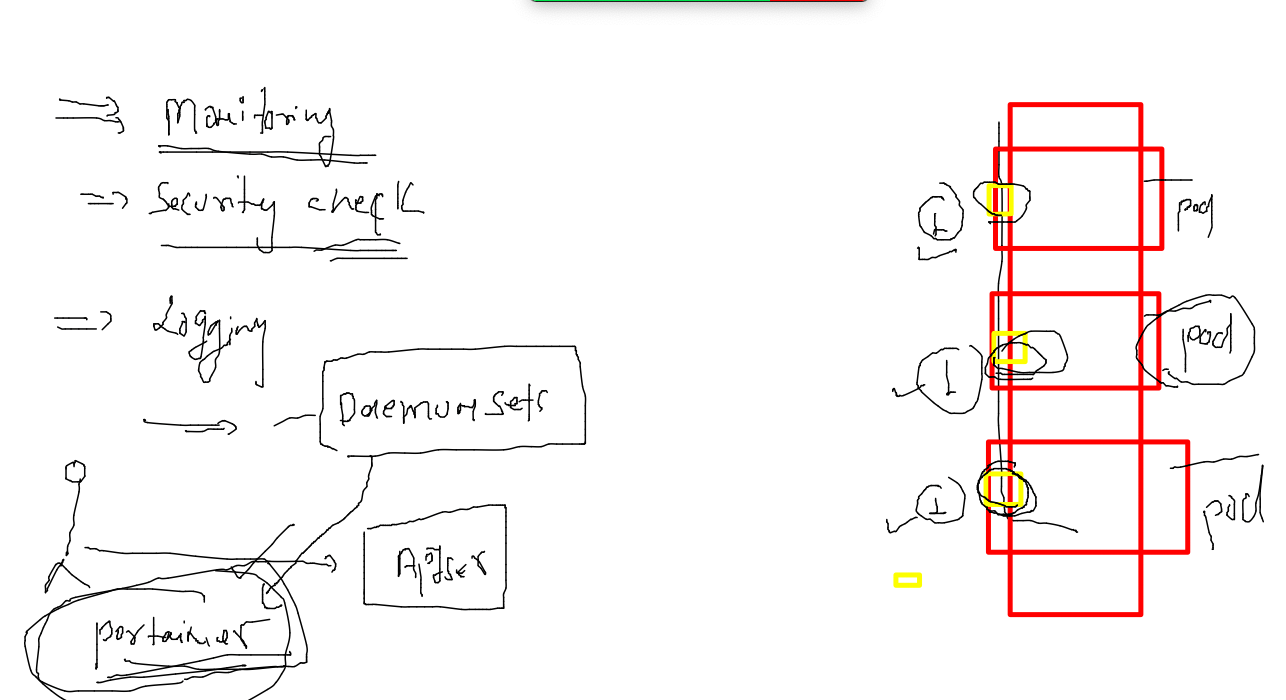 ⇒ Monitoring
⇒ Security check
⇒ Logging
→ Daemonsets
Apiser
portainer
1 pod
1 pod
1 pod